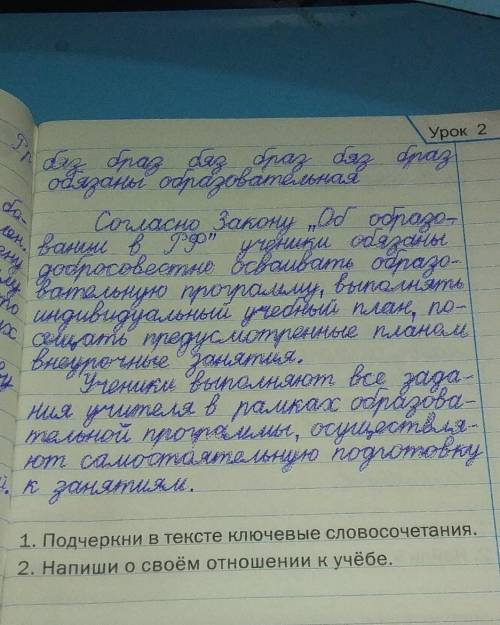 Урок 2
бяз браз бяз браз бяз браз
обязаны образовательная
Согласно Закону „Об образо-
вании в РФ" ученики обязаны
добросовестно осваивать образо-
вательную программу, выполнять
индивидуальный учебный план, по-
сещать предусмотренные планом
внеурочные занятия.
Ученики выполняют все зада-
ния учителя в рамках образова-
тельной программы, осуществля-
ют самостоятельную подготовку
к занятиям.
1. Подчеркни в тексте ключевые словосочетания.
2. Напиши о своём отношении к учёбе.